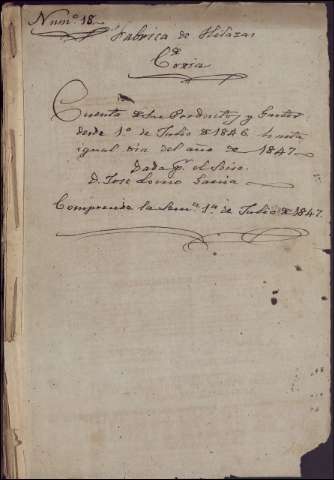 Num.º 18.
Fabrica de Hilazas
Cuenta de los Productos y Gastos
desde 1º de Julio de 1846 hasta
igual dia del año de 1847
Dada p.r el Socio
D. Jose
Comprende la Sem.a 1a. de Julio de 1847.